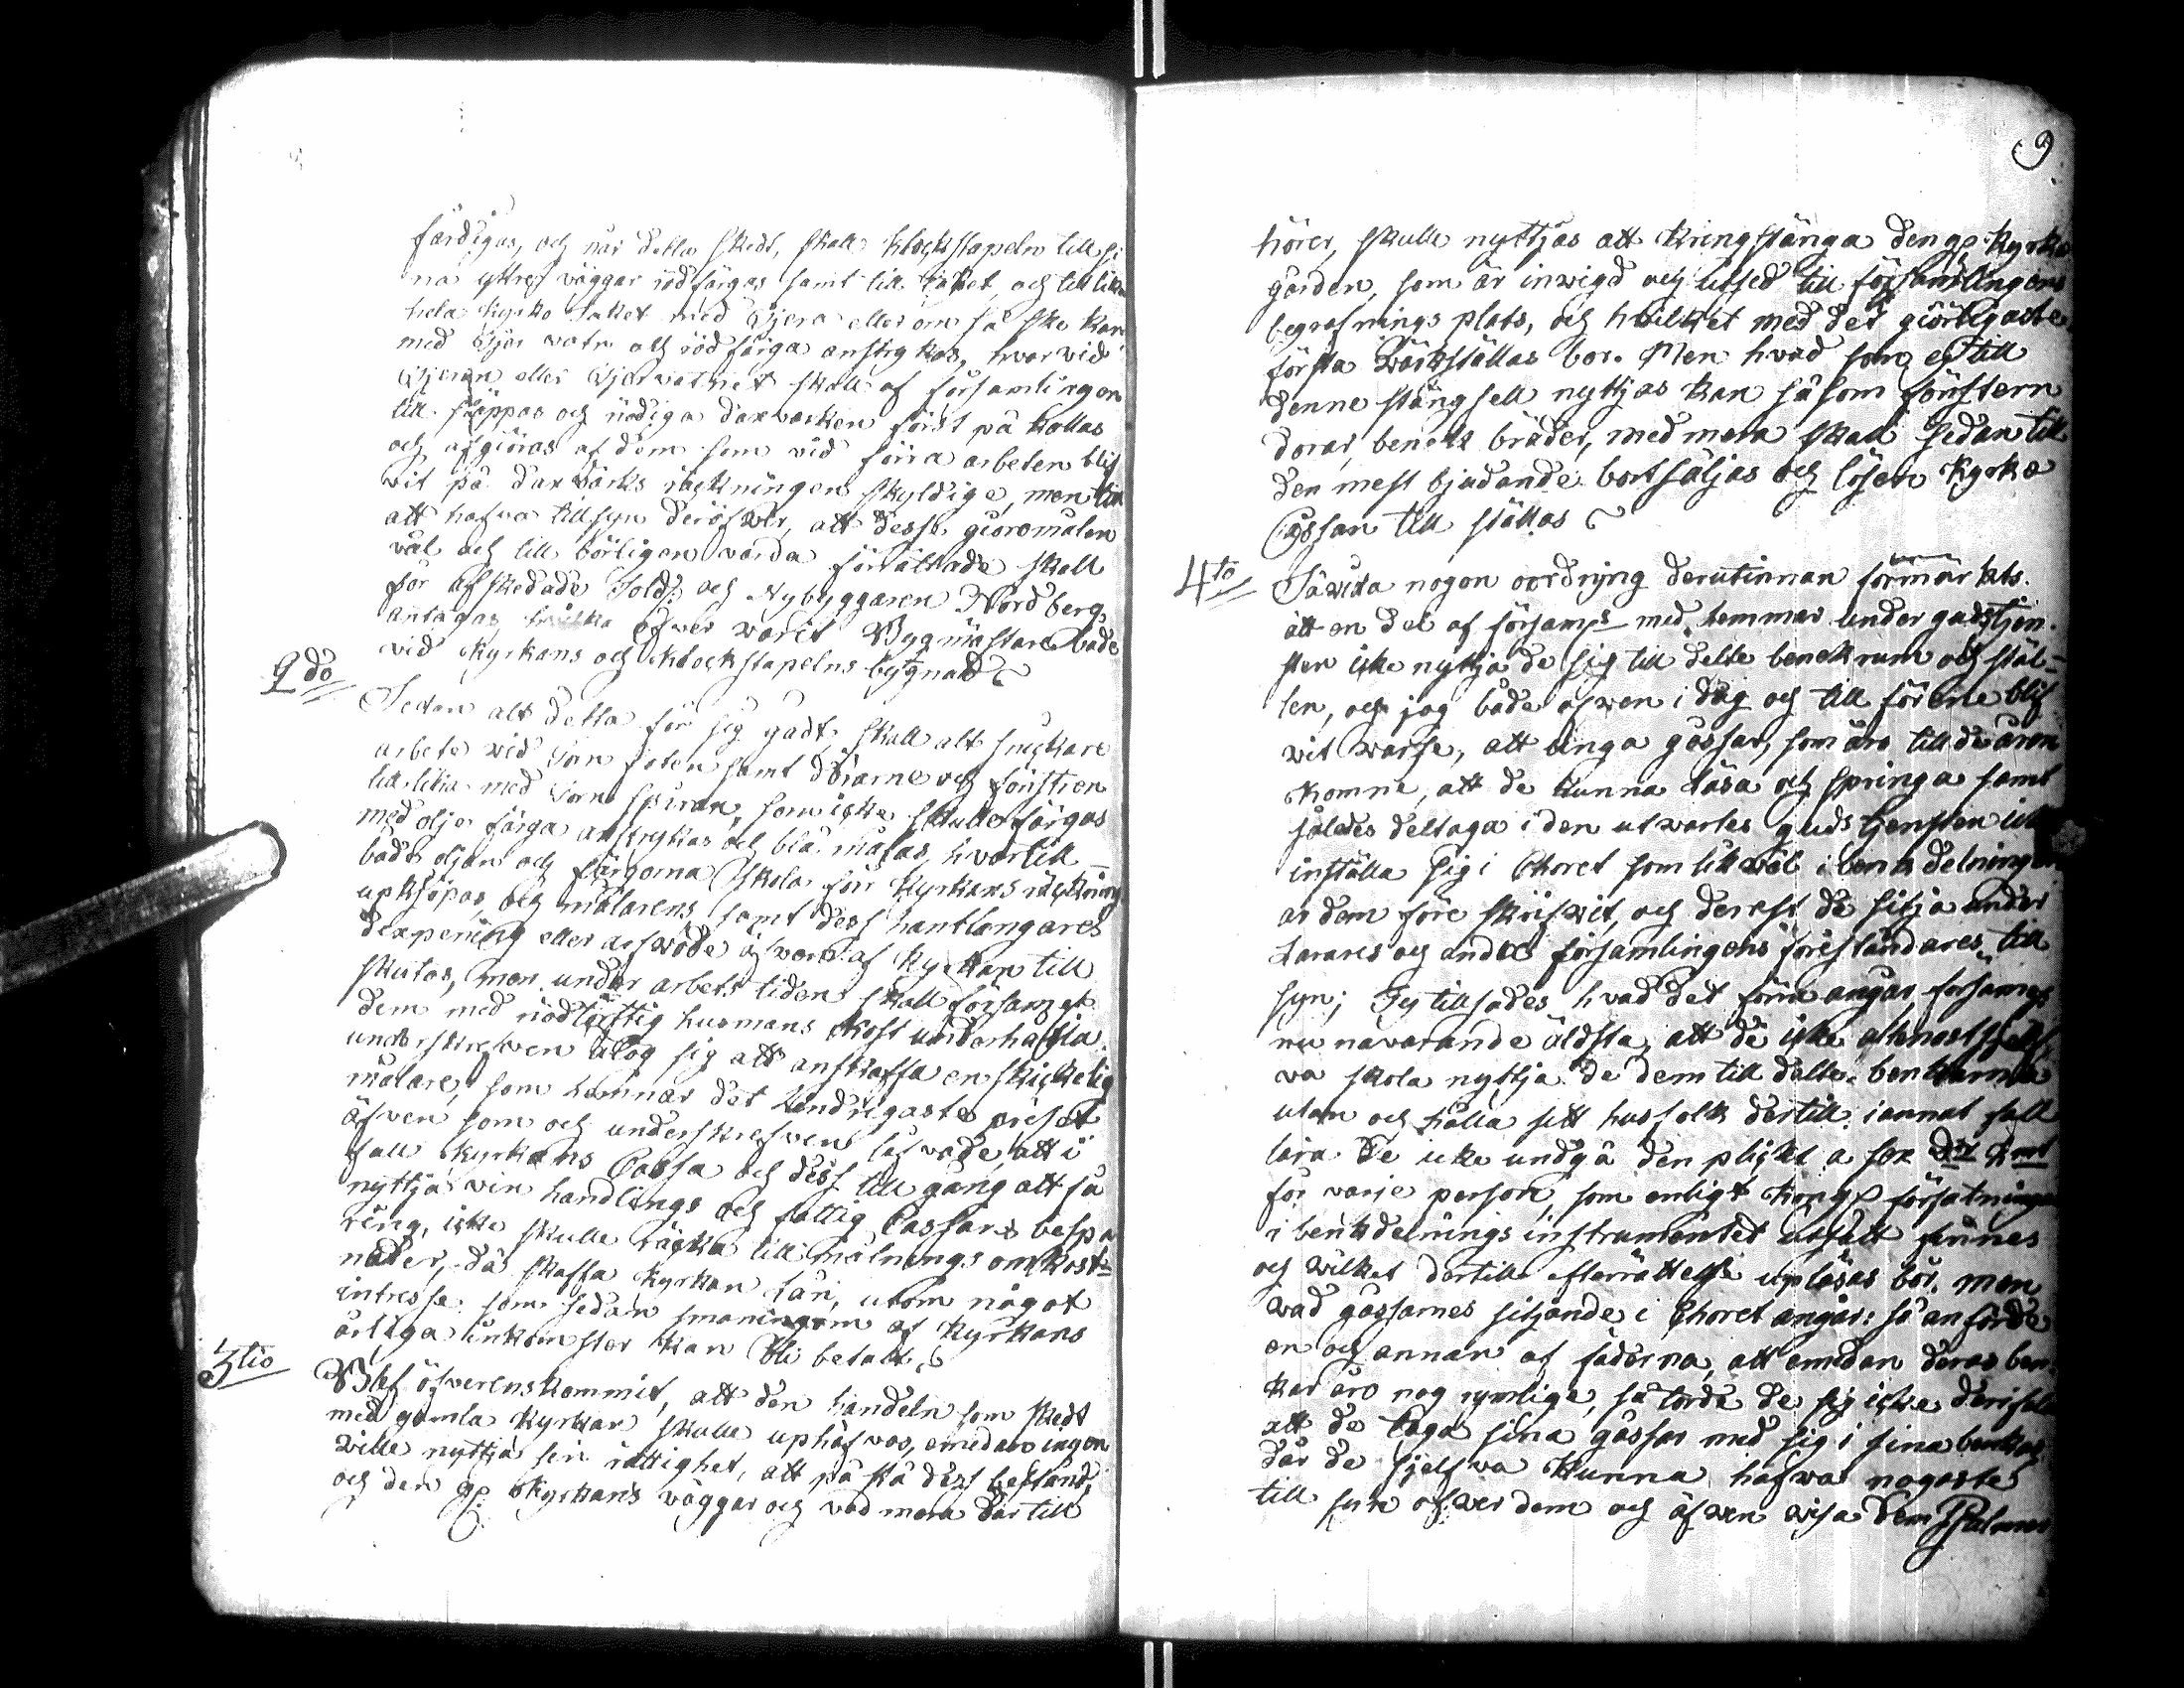 färdigas, och när detta skedt, skall klockstapeln till si
na yttre väggar rödfärgas samt till taket, och till lika
hela kyrko taket med tjera eller om så ske kan
med tjer vatn och röd färga anstrykas, hvarvid
tjeran eller tjervatnet skall af församlingen
till släppas och nödiga daxvarken först på kallas
och afgiöras af dem som vid förra arbeten blif
vit på daxvärks räckningen skyldige, men till
att hafva tillsyn deröfver, att dessa giöromålen
väl och till börligen varda förrättade skall
för afskedade Sold: och Nybyggaren Nordberg
antagas hvilka öfver varit Bygmästare både
vid kyrkans och klockstapelns bygnad
2do
Sedan alt detta för sig gådt, skall alt snickare
arbete vid torn foten samt dörarne och fönstren
till lika med torn spiran, som icke skulle färgas
med olje färga anstrykas och blå målas, hvartill
både oljan och färgorna skola för kyrkans räckning
upkjöpas, och målarens samt dess hantlangares
daxpening eller arfwode äfven af kyrkan till
skutas, men under arbets tiden skall församl
dem med nödtorftig husmans kost underhålla.
underskrefven åtog sig att anskaffa en skickelig
målare, som lemnar det lindrigaste priset
äfven som och underskrefven lofvade att i
fall kyrkans Cassa och dess till gång att få
nyttja vin handlings och fattig Cassans bespa
ring, icke skulle räcka till målnings omkost
nader, då skaffa kyrkan lån, utom något
intresse som sedan småningom af kyrkans
årliga inkomster kan bli betalt
3tio
Blef öfverenskommit, att den handeln som skedt
med gamla kyrkan skulle uphäfvas, emedan ingen
ville nyttja sin rättighet, att på stå dess bestånd,
och den gl: kyrkans väggar och vad mera där till
9
hörer, skulle nyttjas att kringstänga den gl: kyrko
gården, som är invigd och utsed till församlingens
begrafnings plats, och hvilket med det giörligaste
första värkställas bör. Men hvad som ej till
denne stängsell nyttjas kan såsom fönstern
dörar, benck bräder, med mera skall sedan till
den mest bjudande bortsäljas och lösen kyrko
Cassan till ställas
4to
Såvida nogon oordning derutinnan förmärkts.
att en del af församl: med lemmar under gudstjen
sten icke nyttja de sig till delte benckrum och stäl
len, och jag både äfven i dag och till förene blif
vit varse, att unga gossar, som äro till de åren
komne, att de kunna läsa och springa samt
således deltaga i den utvärtes gudstjensten icke
inställa sig i Choret som likväl i benck delningen
är dem före skrifvit, och derest de sitja under
Lärares och andra församlingens föreståndares till
syn; Ty tillsades hvad det förra angår, församl:s
nu närvarande äldsta, att de icke allenast sjelf
va skola nyttja de dem till delte benckarna
utan och hålla sitt husfolk där till, i annat fall
lära de icke undgå den plickt a sex
för varje person, som enligt Kongl: författningen
i benckdelnings instrumentet utsatt finnes
och vilket dertill efterrättelse upläsas bör. men
vad gossarnes sitjande i Choret angår: så anförde
en och annan af fäderna, att emedan deras ben
kar äro nog rymlige, så torde de sig icke
att de taga sina gossar med sig i sina benkar
där de sjelfva kunna hafva nogaste
till syn öfver dem och äfven visa dem Psalmer